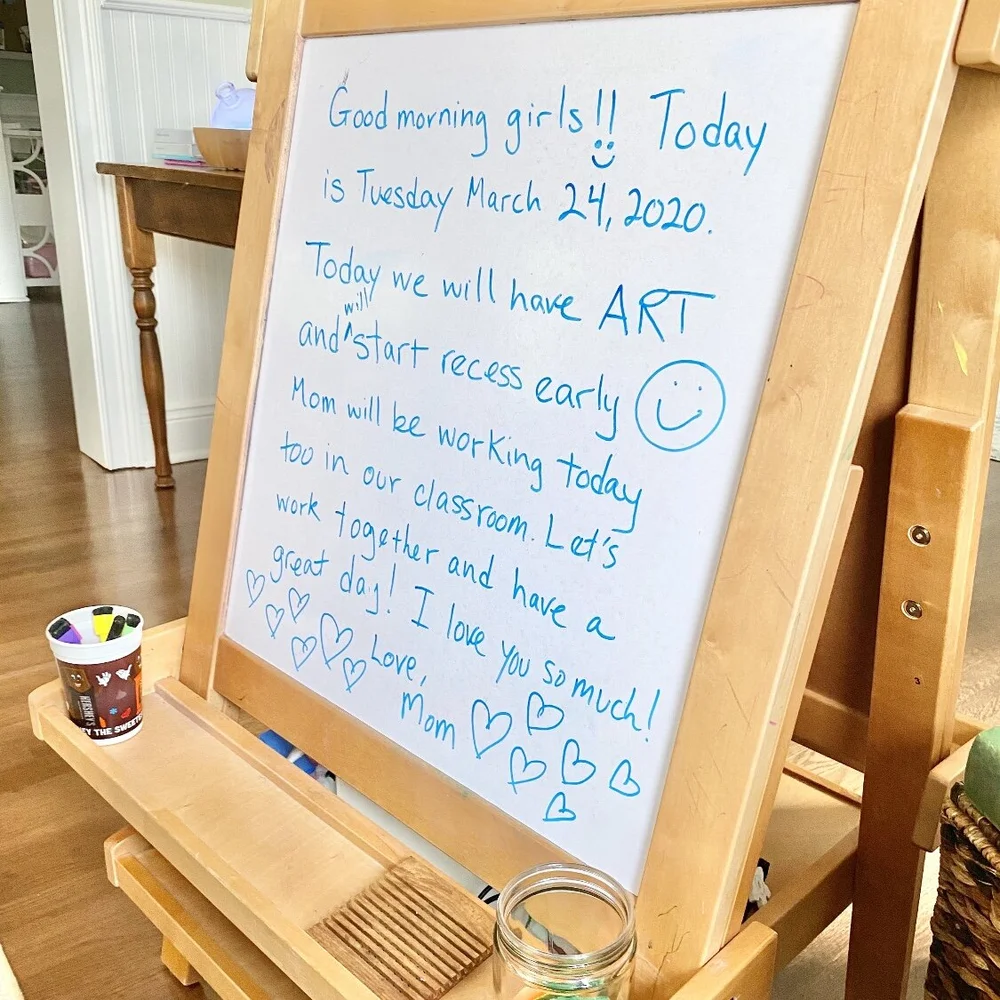 Good morning girls!! Today
is Tuesday March 24, 2020.
Today we will have ART
and will start recess early
Mom will be working today
too in our classroom. Let's
work together and have a
great day! I love you so much!
Love,
Mom
HERSHEY'S
EY THE SWEETE